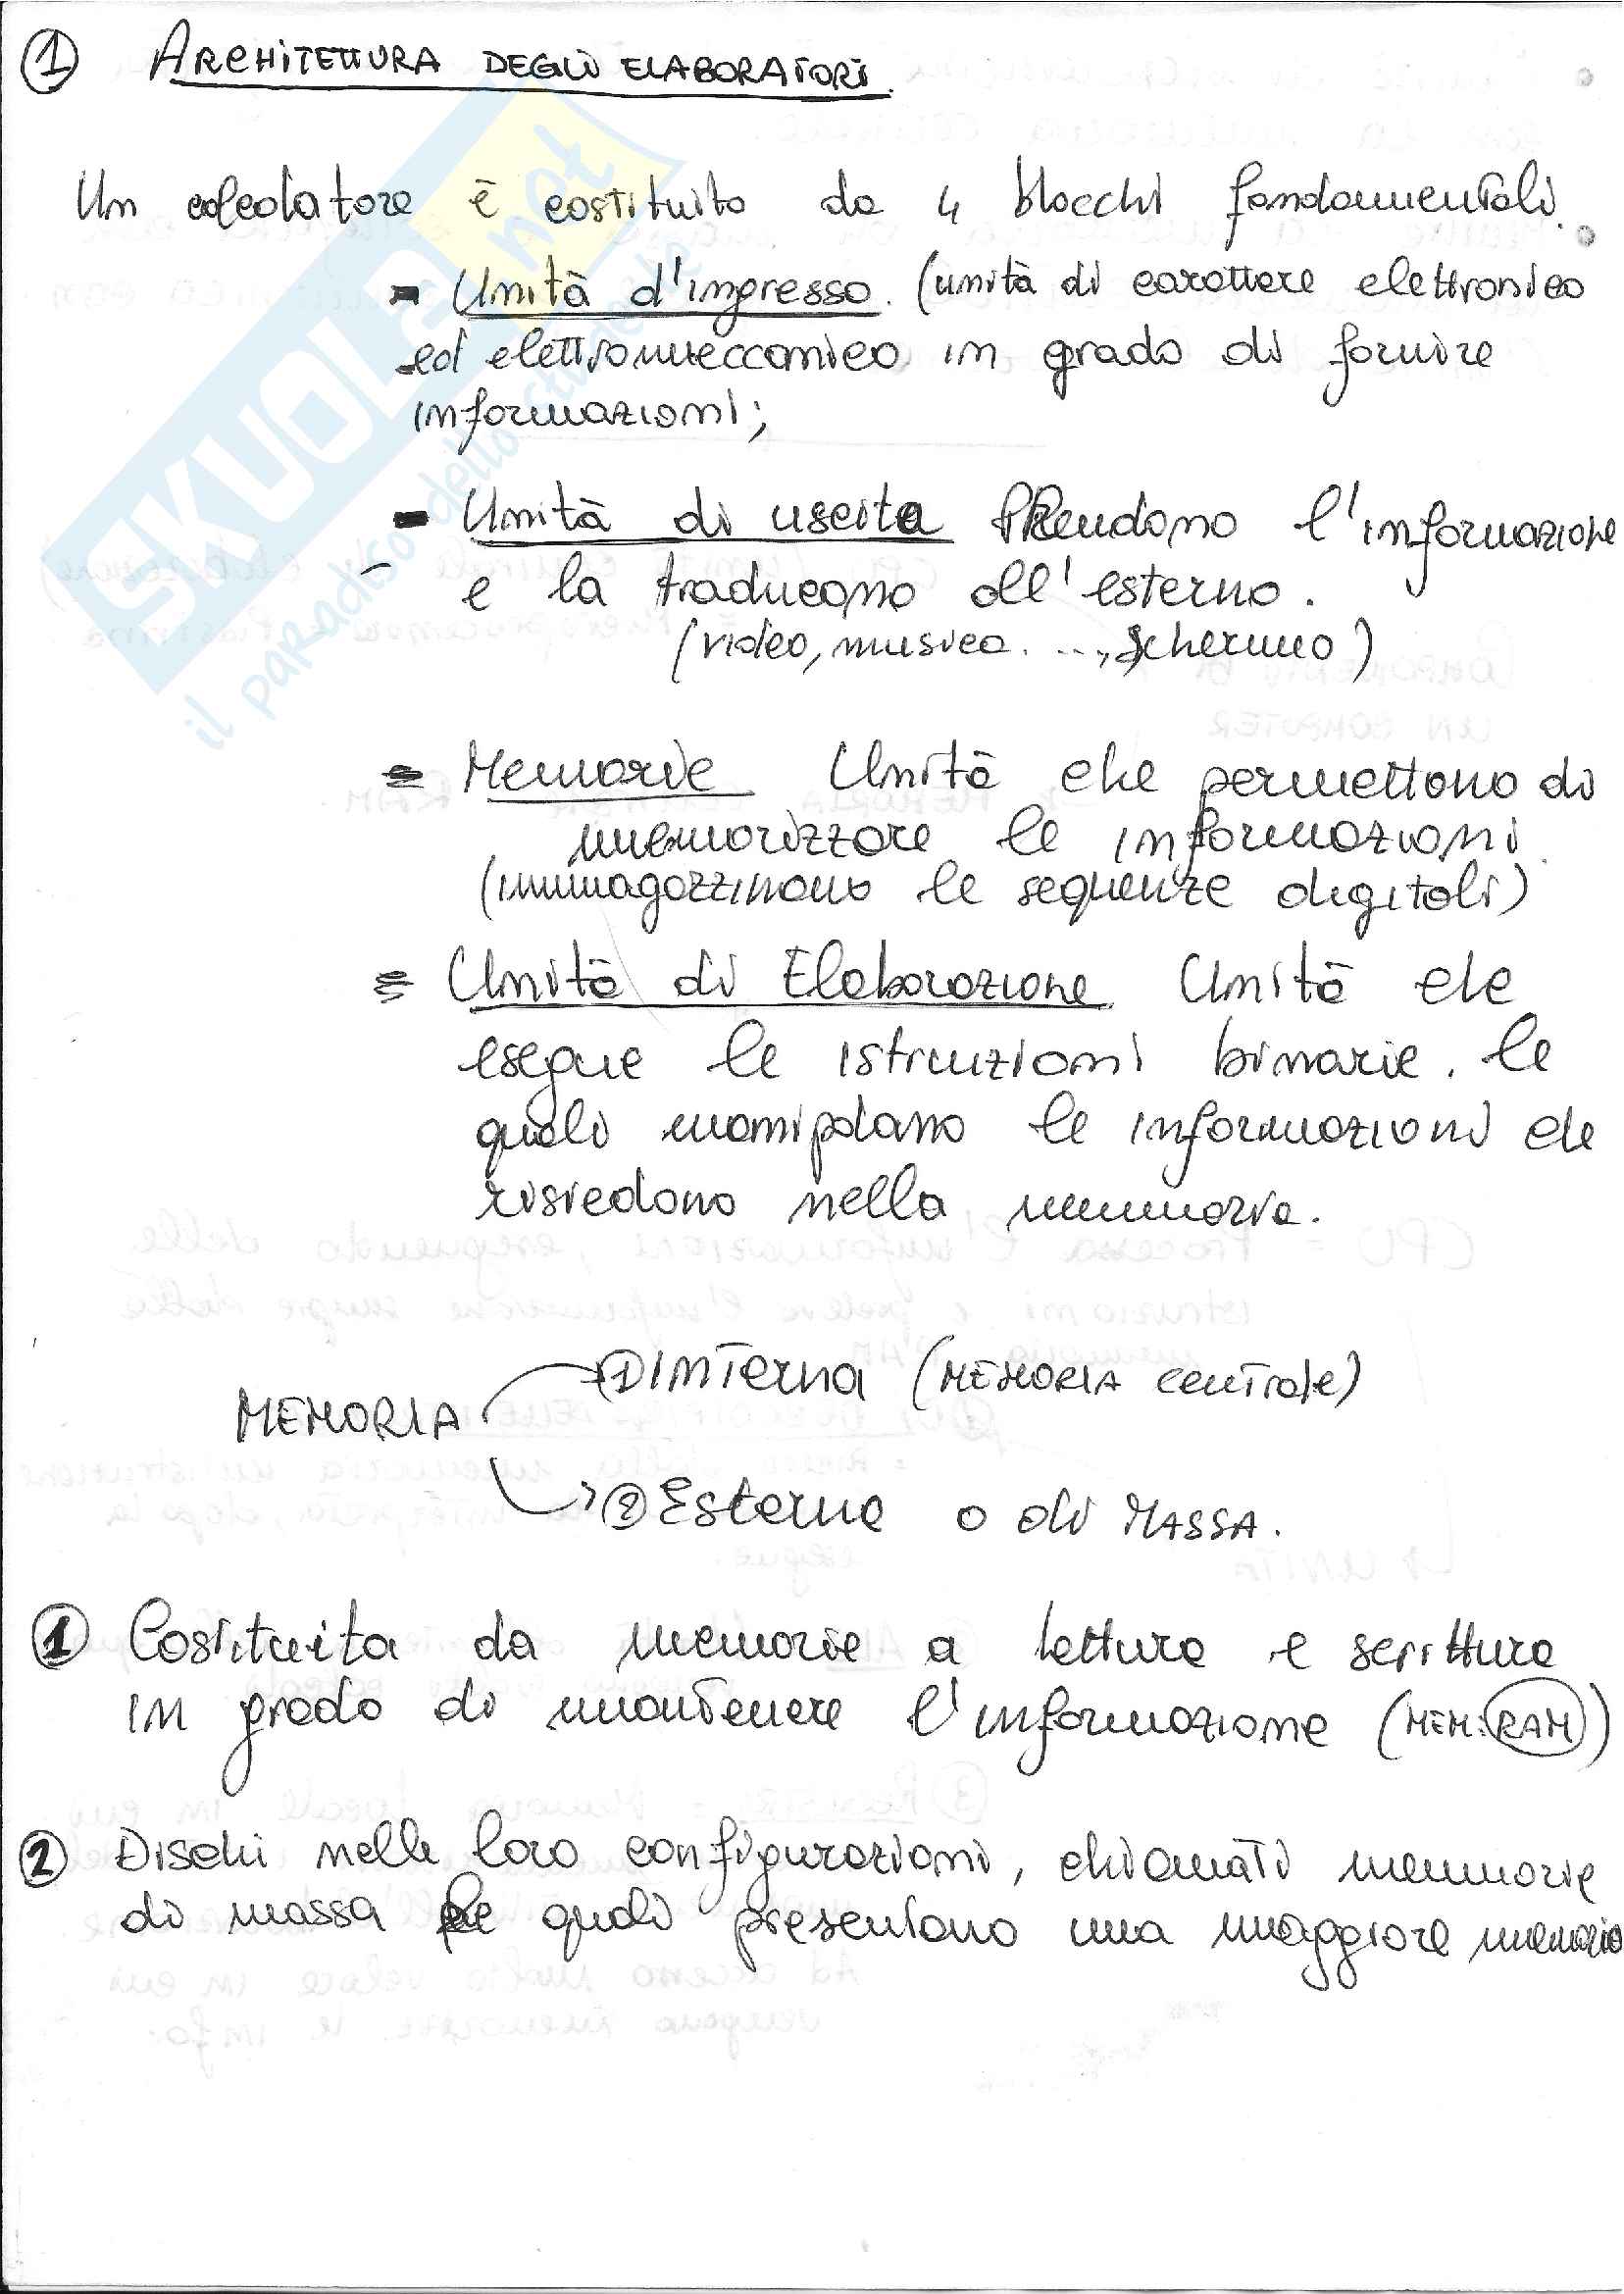 ① ARCHITETTURA DEGLI ELABORATORI.
Un calcolatore è costituito da 4 blocchi fondamentali.
- Unità d'ingresso. (unità di carattere elettronico
ed elettromeccanico in grado di fornire
informazioni;
- Unità di uscita Prendono l'informazione
e la traducono all'esterno.
(video, musica. ..., schermo)
- Memorie Unità che permettono di
memorizzare le informazioni.
(immagazzinano le sequenze digitali)
- Unità di Elaborazione Unità che
esegue le istruzioni binarie. le
quali manipolano le informazioni che
risiedono nella memoria.
① Interna (MEMORIA centrale)
MEMORIA
② Esterna o di MASSA.
① Costituita da memorie a lettura e scrittura
in grado di mantenere l'informazione (MEM. RAM)
② Dischi nelle loro configurazioni, chiamati memorie
di massa le quali presentano una maggiore memoria
SKUOLA.net
il paradiso dello studente